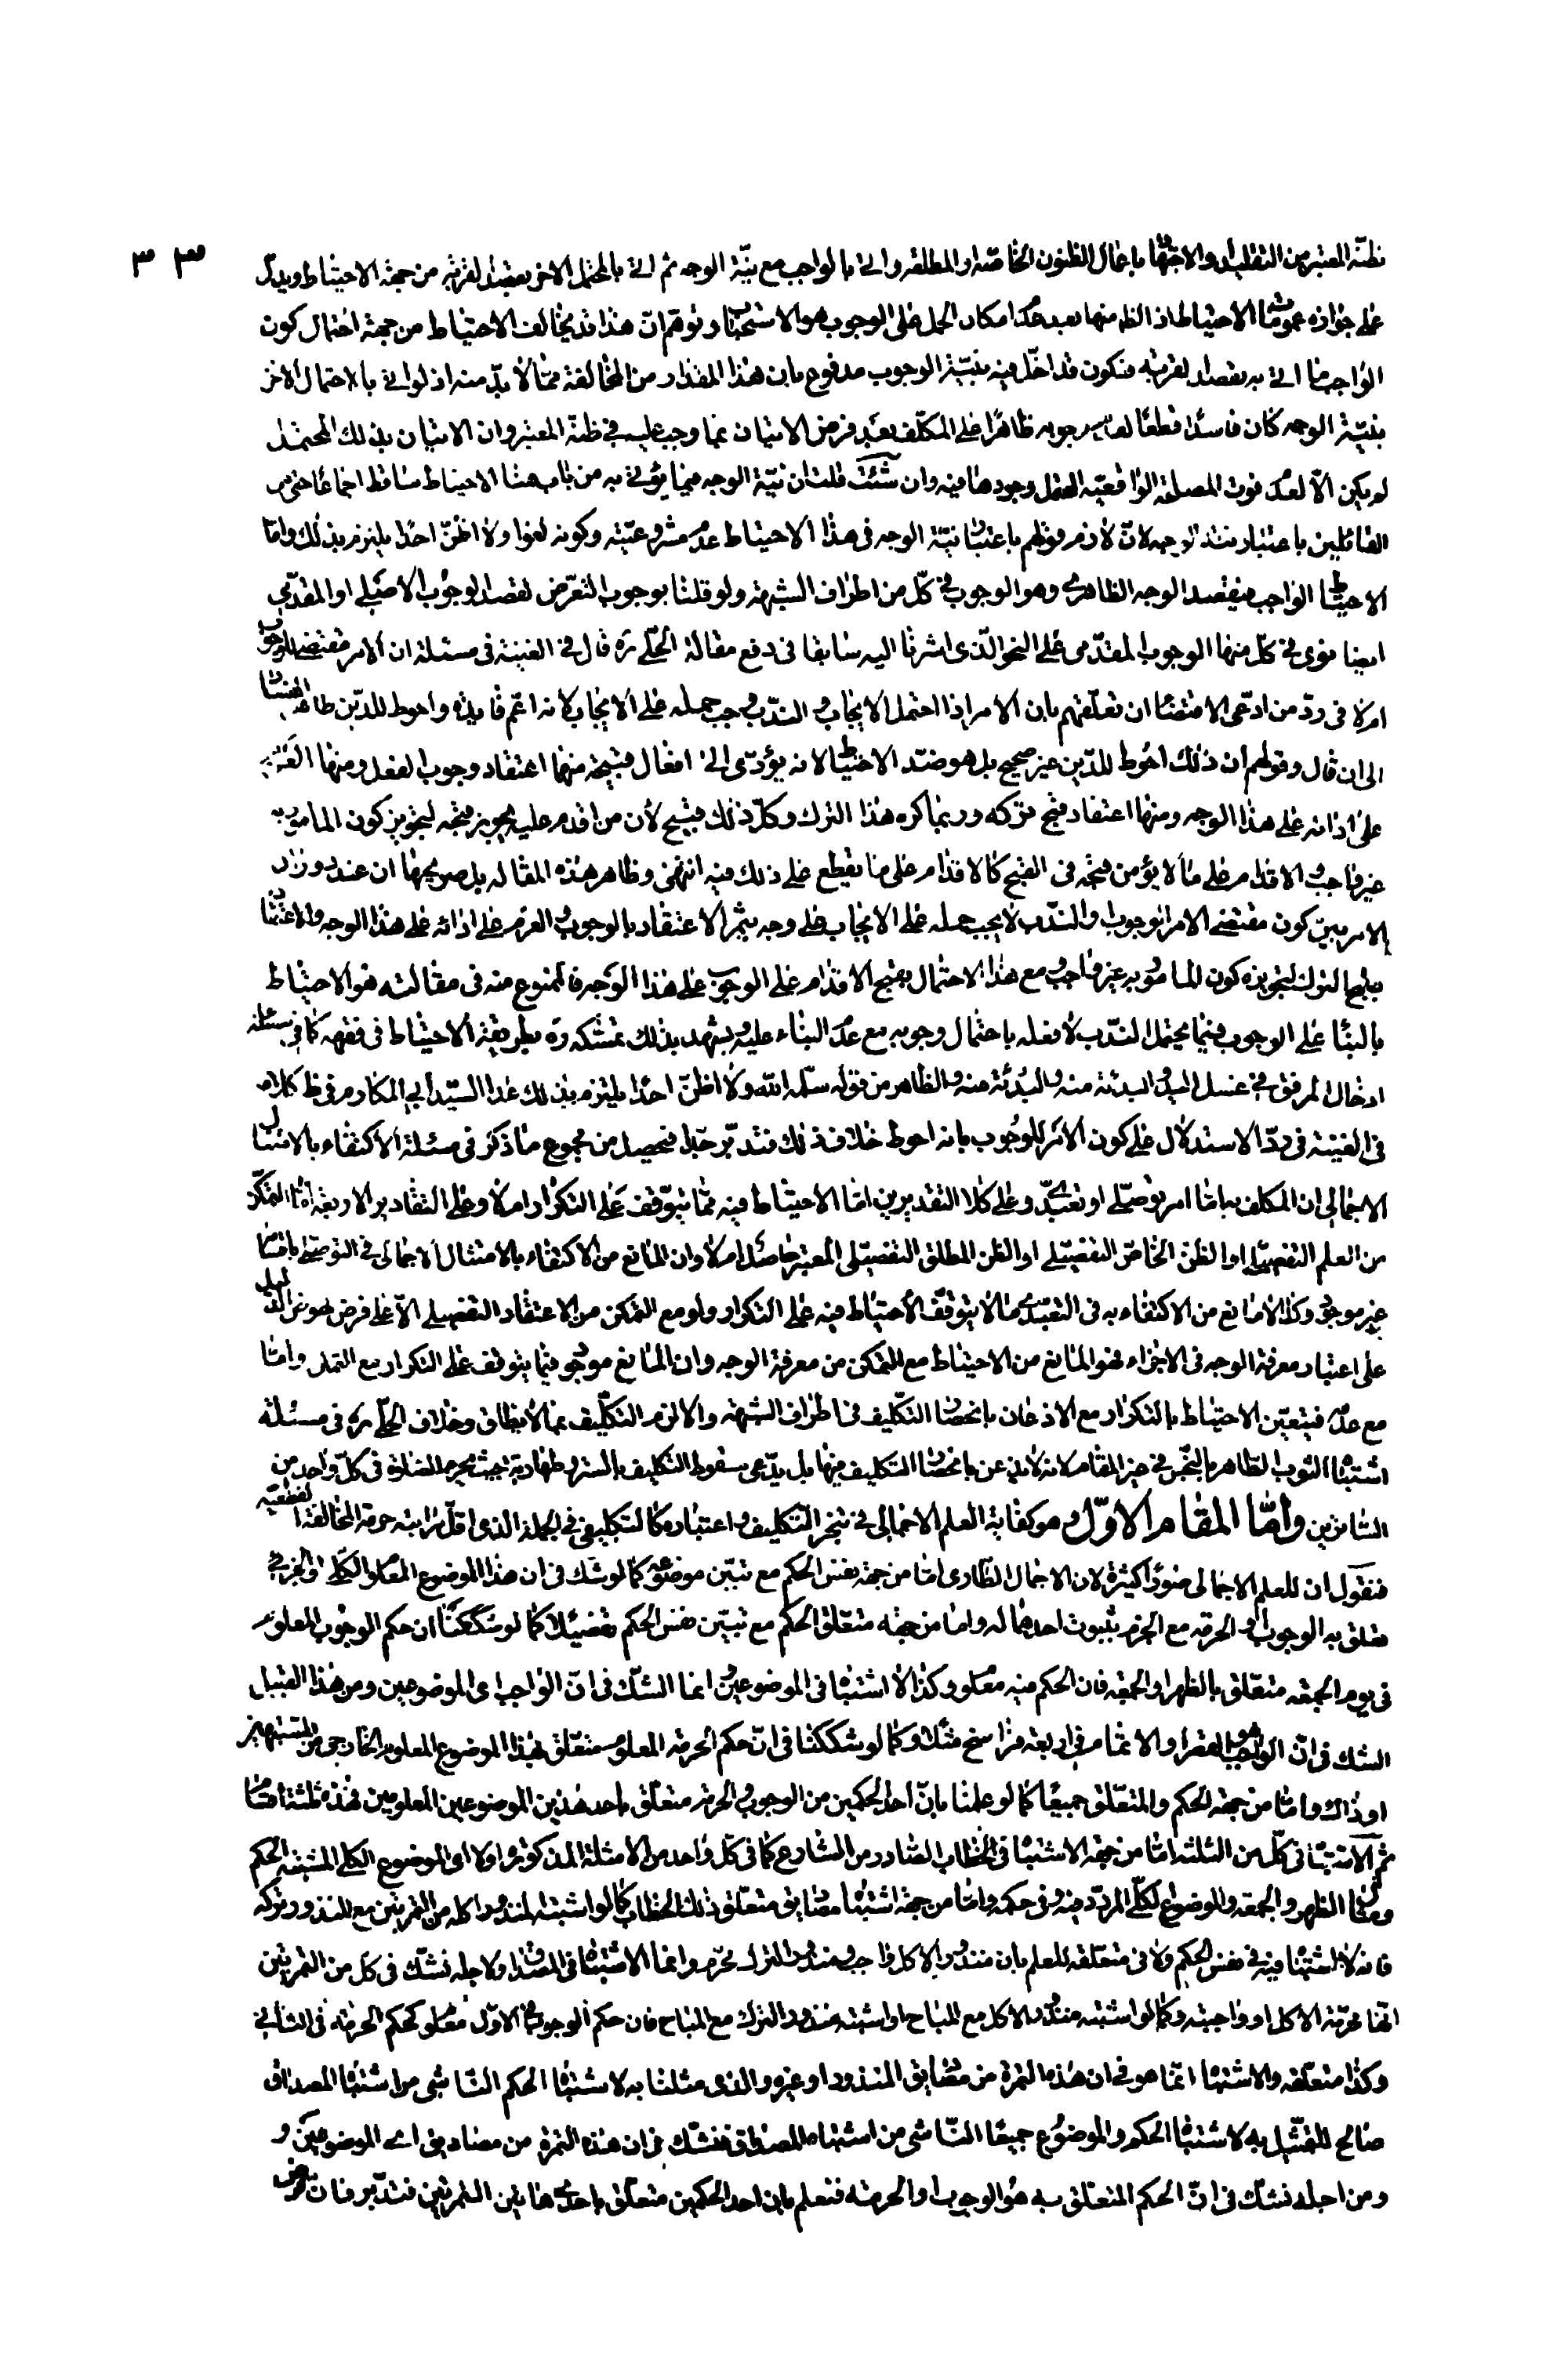 ٣٣
ظنّه المعتبر من التقليد والاجتهاد باعمال الظنون الخاصّة او المطلقه واتى بالواجب مع نيّة الوجه ثم اتى بالمحتمل الاخر بقصد القربة من جهة الاحتياط ويدلّ
على جوازه عمومات الاحتياط اذ الظ منها بعد عدم امكان الحمل على الوجوب هو الاستحباب وتوهّم انّ هذا قد يخالف الاحتياط من جهة احتمال كون
الواجب ما اتى به بقصد القربة فتكون قد اخلّ فيه بنيّة الوجوب مدفوع بان هذا المقدار من المخالفة ممّا لا بدّ منه اذ لو اتى بالاحتمال الاخر
بنيّة الوجه كان فاسدا قطعا لعدم وجوبه ظاهرا على المكلّف بعد فرض الاتيان بما وجب عليه في ظنّه المعتبر وان الاتيان بذلك المحتمل
لم يكن الّا لعدم فوت المصلحة الواقعيّه المحتمل وجودها فيه وان شئت قلت ان نيّة الوجه فيما يؤتى به من باب هذا الاحتياط ساقط اجماعا حتى من
القائلين باعتباره فتدبّر وجهه لانّ لازم قولهم باعتبار نيّة الوجه فى هذا الاحتياط عدم مشروعيّته وكونه لغوا ولا اظنّ احدا يلتزم بذلك وامّا
الاحتياط الواجب فيقصد الوجه الظاهرى وهو الوجوب فى كلّ من اطراف الشبهة ولو قلنا بوجوب التعرّض لقصد الوجوب الاصلى او المقدّمى
ايضا نوى فى كلّ منها الوجوب المقدّمى على النحو الّذى اشرنا اليه سابقا فى دفع مقالة الحلّى ره قال فى الغنية فى مسئلة ان الامر مقتضى للوجوب
ام لا فى ردّ من ادّعى الاقتضاء ان تعلّقهم بان الامر اذا احتمل الايجاب والندب وجب حمله على الايجاب لانه اعمّ فايدة واحوط للدّين
الى ان قال وقولهم ان ذلك احوط للدّين غير صحيح بل هو ضدّ الاحتياط لانه يؤدّى الى افعال قبيحة منها اعتقاد وجوب الفعل ومنها العزم
على ادائه على هذا الوجه ومنها اعتقاد قبح تركه وربما كره هذا الترك وكلّ ذلك قبيح لان من اقدم عليه يجوز قبحه لتجويز كون المامور به
غير واجب والاقدام على ما لا يؤمن قبحه فى القبح كالاقدام على ما يقطع على ذلك فيه انتهى وظاهر هذه المقاله بل صريحها ان عند دوران
الامر بين كون مقتضى الامر الوجوب او الندب لا يجب حمله على الايجاب على وجه يثمر الاعتقاد بالوجوب والعزم على ادائه على هذا الوجه والاعتقاد
بقبح الترك لتجويزه كون المامور به غير واجب ومع هذا الاحتمال يقبح الاقدام على الوجوب على هذا الوجه فالممنوع منه فى مقالته هو الاحتياط
بالبناء على الوجوب فيما يحتمل الندب لا فعله باحتمال وجوبه مع عدم البناء عليه ويشهد بذلك تمسّكه ره بطريقة الاحتياط فى فقهه كما فى مسئلة
ادخال المرفق فى غسل اليد والبدئة منه والظاهر من قوله سلّمه الله ولا اظنّ احدا يلتزم بذلك عدا السيّد ابى المكارم فى ظ كلامه
فى الغنية فى ردّ الاستدلال على كون الامر للوجوب بانه احوط خلاف ذلك فتدبّر جيّدا فتحصل من مجموع ما ذكر فى مسئلة الاكتفاء بالامتثال
الاجمالى ان المكلف به امّا امر توصّلى او تعبّدى وعلى كلا التقديرين امّا الاحتياط فيه ممّا يتوقّف على التكرار ام لا وعلى التقادير الاربعة امّا التمكّن
من العلم التفصيلى او الظنّ الخاصّ التفصيلى او الظن المطلق التفصيلى المعتبر حاصل ام لا وان المانع من الاكتفاء بالامتثال الاجمالى فى التوصّلى باقسامه
غير موجود وكذا لا مانع من الاكتفاء به فى التعبّدى ممّا لا يتوقّف الاحتياط فيه على التكرار ولو مع التمكن من الاعتقاد التفصيلى الّا على فرض نهوض الدليل
على اعتبار معرفة الوجه فى الاجزاء فهو المانع من الاحتياط مع التمكن من معرفة الوجه وان المانع موجود فيما يتوقف على التكرار مع التمكن وامّا
مع عدمه فيتعيّن الاحتياط بالتكرار مع الاذعان بانحصار التكليف فى اطراف الشبهة والا لزم التكليف بما لا يطاق وخلاف الحلّى ره فى مسئلة
اشتباه الثوب الطاهر بالنّجس فى حيز المقام لانه لا يذعن بانحصار التكليف فيها بل يدّعى سقوط التكليف بالستر وطهارته حيث يحرم الصّلوة فى كلّ واحد من
الساترين وامّا المقام الاوّل وهو كفاية العلم الاجمالى فى تنجّز التكليف واعتباره كالتفصيلى فى الجملة الذى اقلّ مراتبه حرمة المخالفة القطعيّه
فنقول ان للعلم الاجمالى صورا كثيرة لان الاجمال الطارى امّا من جهة نفس الحكم مع تبيّن موضوعه كما لو شك فى ان هذا الموضوع المعلوم الكلّى او الجزئى
يتعلق به الوجوب او الحرمة مع الجزم بثبوت احدهما له وامّا من جهة متعلّق الحكم مع تبيّن نفس الحكم تفصيلا كما لو شككنا ان حكم الوجوب المعلوم
فى يوم الجمعه متعلّق بالظهر او الجمعة فان الحكم فيه معلوم وكذا لا اشتباه فى الموضوعين وانما الشكّ فى انّ الواجب اى الموضوعين ومن هذا القبيل
الشك فى انّ الواجب هو القصر او الاتمام فى اربعة فراسخ مثلا وكما لو شككنا فى انّ حكم الحرمة المعلوم متعلّق بهذا الموضوع المعلوم الخارجى من المشتبهين
او ذاك وامّا من جهة الحكم والمتعلّق جميعا كما لو علمنا بانّ احد الحكمين من الوجوب والحرمة متعلّق باحد هذين الموضوعين المعلومين فهذه ثلثة اقسام
ثم الاشتباه فى كلّ من الثلثة امّا من جهة الاشتباه فى الخطاب الصّادر من الشارع كما فى كلّ واحد من الامثلة المذكورة اولا اى الموضوع الكلى المشتبه الحكم
ومثال الظهر والجمعة والموضوع الكلّى المردّد فيه وفى حكمه وامّا من جهة اشتباه مصاديق متعلّق ذلك الخطاب كما لو اشتبه المنذور اكله من التمرتين مع المنذور تركه
فانه لا اشتباه فيه فى نفس الحكم ولا فى متعلّقه للعلم بان منذور الاكل واجب ومنذور الترك محرّم وانما الاشتباه فى المصداق ولاجله نشكّ فى كل من التمرتين
انّها محرّمة الاكل او واجبته وكما لو اشتبه منذور الاكل مع المباح او اشتبه منذور الترك مع المباح فان حكم الوجوب فى الاوّل معلوم كحكم الحرمة فى الثانى
وكذا متعلّقه والاشتباه انّما هو فى ان هذه التمرة من مصاديق المنذور او غيره والذى مثلنا به لاشتباه الحكم النّاشى من اشتباه المصداق
صالح للتمثيل به لاشتباه الحكم والموضوع جميعا النّاشى من اشتباه المصداق فنشكّ فى ان هذه التمرة من مصاديق اى الموضوعين و
ومن اجله نشكّ فى انّ الحكم المتعلق به هو الوجوب او الحرمة فنعلم بان احد الحكمين متعلّق باحدى هاتين التمرتين فتدبّر فان